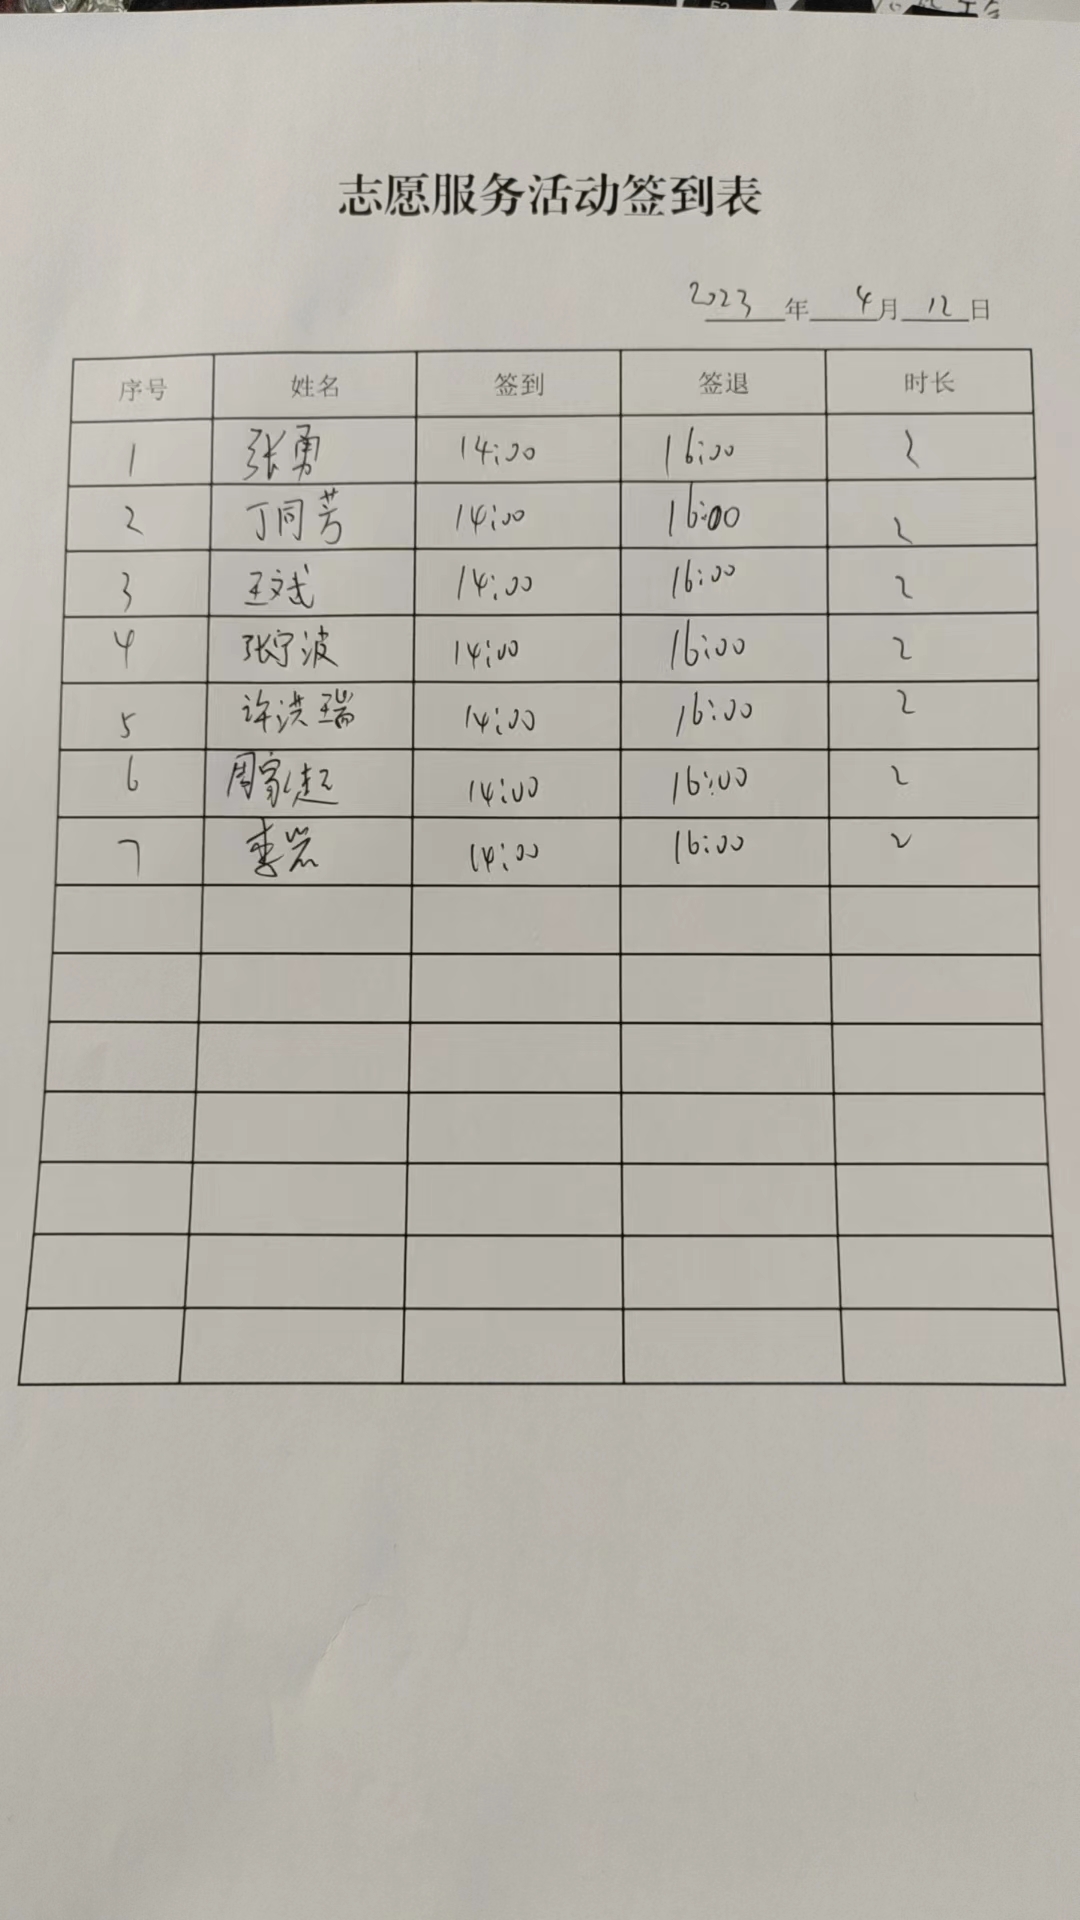 志愿服务活动签到表
2023年4月12日
序号 姓名 签到 签退 时长
1 张勇 14:00 16:00 2
2 丁同芳 14:00 16:00 2
3 王文武 14:00 16:00 2
4 张宁波 14:00 16:00 2
5 许洪瑞 14:00 16:00 2
6 周家起 14:00 16:00 2
7 李岩 14:00 16:00 2